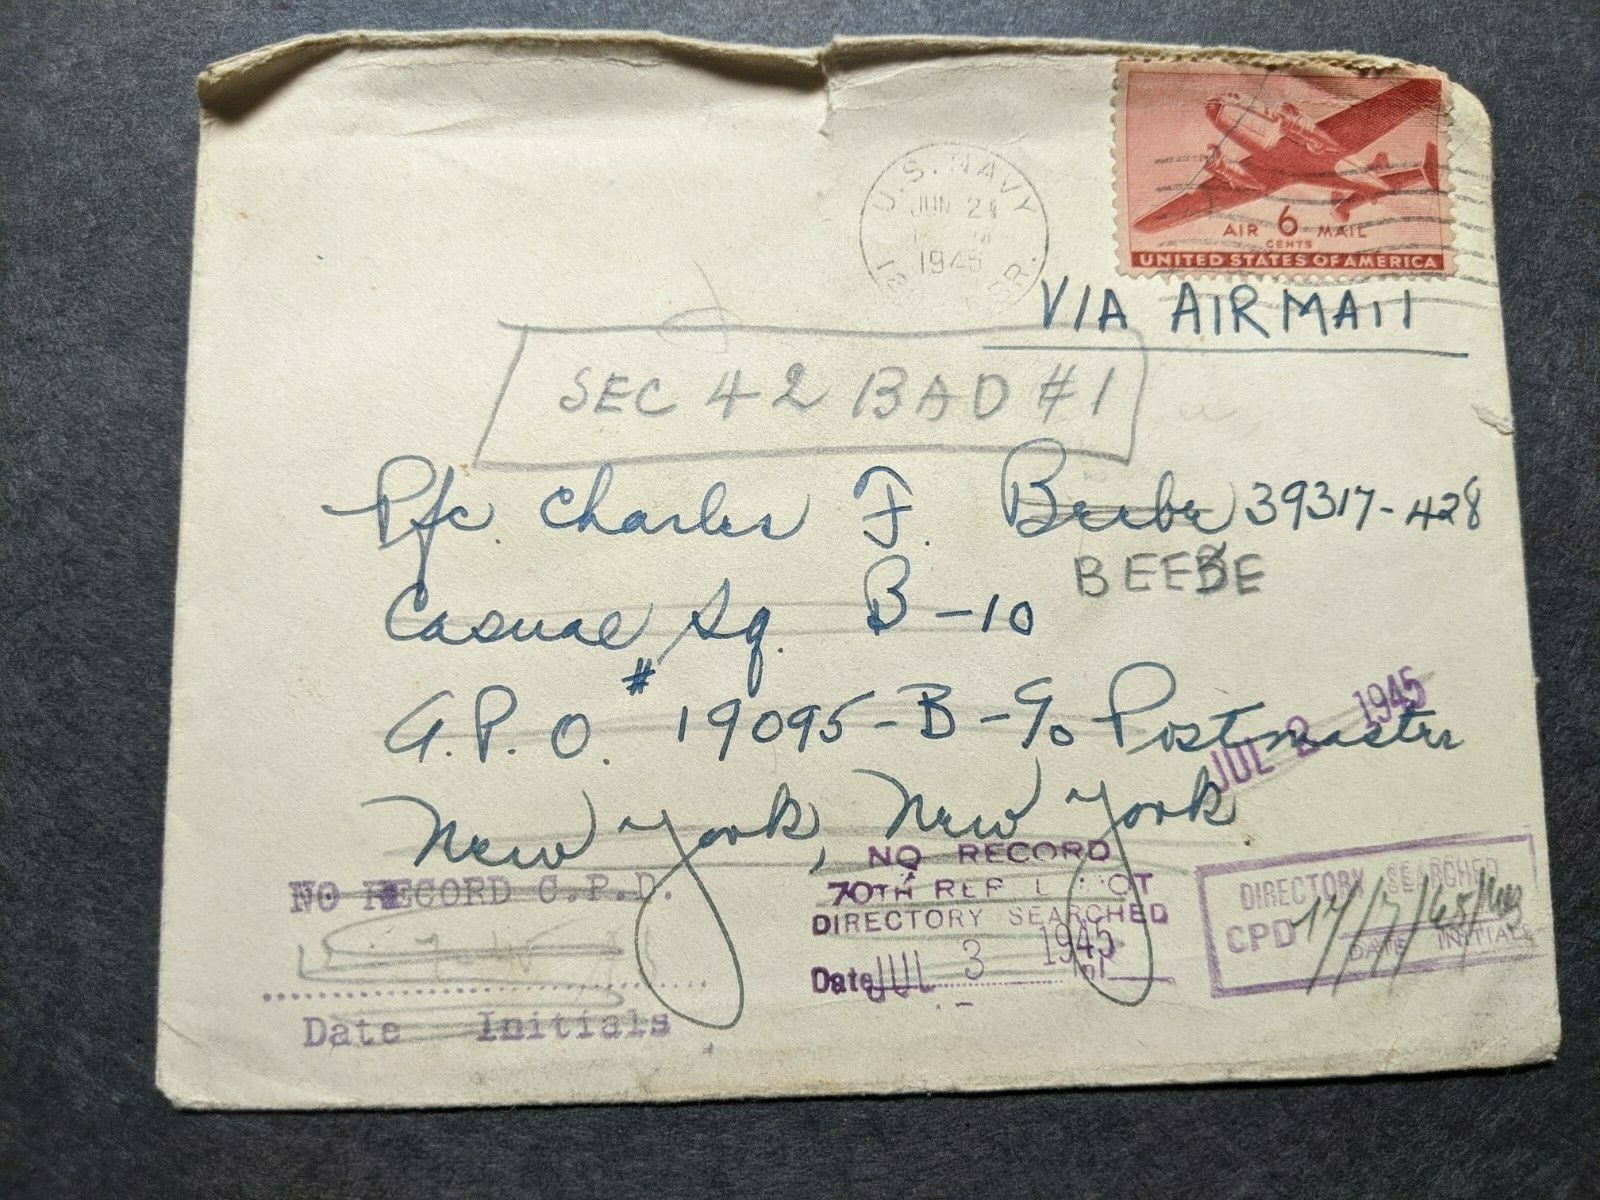 U.S. NAVY
JUN 24
1945
AIR 6 MAIL
CENTS
UNITED STATES OF AMERICA
VIA AIRMAIL
SEC 42 BAD #1
Pfc. Charles F. Beebe 39317-428
BEEBE
Casual Sq. B-10
A.P.O. # 19095-B-c/o Postmaster
New York, New York
JUL 2 1945
NO RECORD C.P.D.
Date Initials
NO RECORD
70TH REP DEPOT
DIRECTORY SEARCHED
Date JUL 3 1945
DIRECTORY SEARCHED
CPD 17/7/45
DATE INITIALS